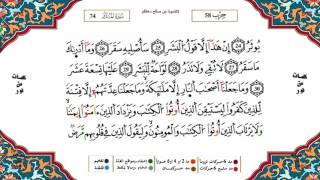 74
حزب 58
يُؤْثَرُ 24 إِنْ هَٰذَآ إِلَّا قَوْلُ ٱلْبَشَرِ 25 سَأُصْلِيهِ سَقَرَ 26 وَمَآ أَدْرَىٰكَ
مَا سَقَرُ 27 لَا تُبْقِى وَلَا تَذَرُ 28 لَوَّاحَةٌ لِّلْبَشَرِ 29 عَلَيْهَا تِسْعَةَ عَشَرَ
30 وَمَا جَعَلْنَآ أَصْحَٰبَ ٱلنَّارِ إِلَّا مَلَٰٓئِكَةً وَمَا جَعَلْنَا عِدَّتَهُمْ إِلَّا فِتْنَةً
لِّلَّذِينَ كَفَرُوا۟ لِيَسْتَيْقِنَ ٱلَّذِينَ أُوتُوا۟ ٱلْكِتَٰبَ وَيَزْدَادَ ٱلَّذِينَ ءَامَنُوٓا۟ إِيمَٰنًا
وَلَا يَرْتَابَ ٱلَّذِينَ أُوتُوا۟ ٱلْكِتَٰبَ وَٱلْمُؤْمِنُونَ وَلِيَقُولَ ٱلَّذِينَ فِى قُلُوبِهِم مَّرَضٌ
كلمات
من
نور